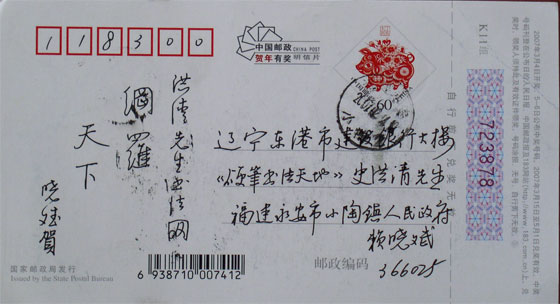 118300
中国邮政 CHINA POST
贺年有奖 明信片
60
K11组
723878
辽宁东港市建设银行大楼
《颂笔书法天地》史洪清先生
福建永安市小陶镇人民政府
赖晓斌
366025
洪清先生书法网
網羅
天下
晓斌賀
国家邮政局发行
Issued by the State Postal Bureau
6 938710 007412
邮政编码